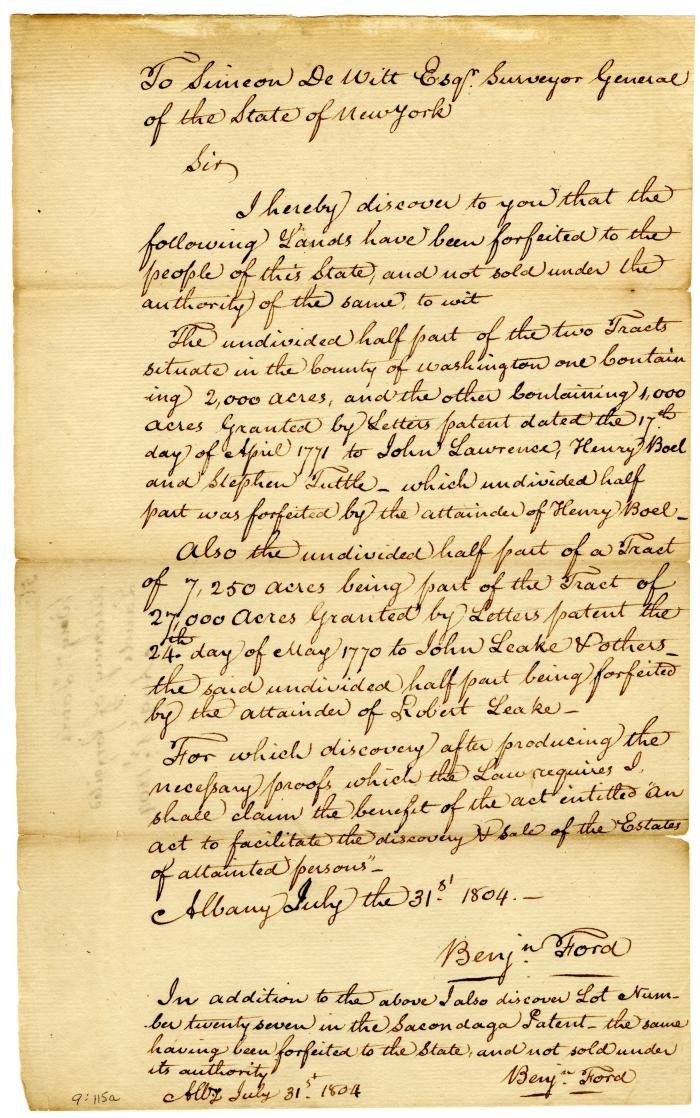 To Simeon De Witt Esqr. Surveyor General
of the State of New York
Sir
I hereby discover to you that the
following Lands have been forfeited to the
people of this State, and not sold under the
authority of the same, to wit
The undivided half part of the two Tracts
situate in the County of Washington one Contain
ing 2,000 acres, and the other Containing 1,000
acres Granted by Letters patent dated the 17th
day of April 1771 to John Lawrence, Henry Boel
and Stephen Tuttle – which undivided half
part was forfeited by the attainder of Henry Boel –
Also the undivided half part of a Tract
of 7,250 acres being part of the Tract of
27,000 Acres Granted by Letters patent the
24th. day of May 1770 to John Leake & others –
the said undivided half part being forfeited
by the attainder of Robert Leake –
For which discovery after producing the
necessary proofs which the Law requires I
shall claim the benefit of the act entitled "An
act to facilitate the discovery & sale of the Estates
of attainted persons" –
Albany July the 31st. 1804. –
Benjn. Ford
In addition to the above I also discover Lot Num-
ber twenty seven in the Sacondaga Patent – the same
having been forfeited to the State, and not sold under
its authority
Alby July 31st. 1804
Benjn. Ford
9:115a